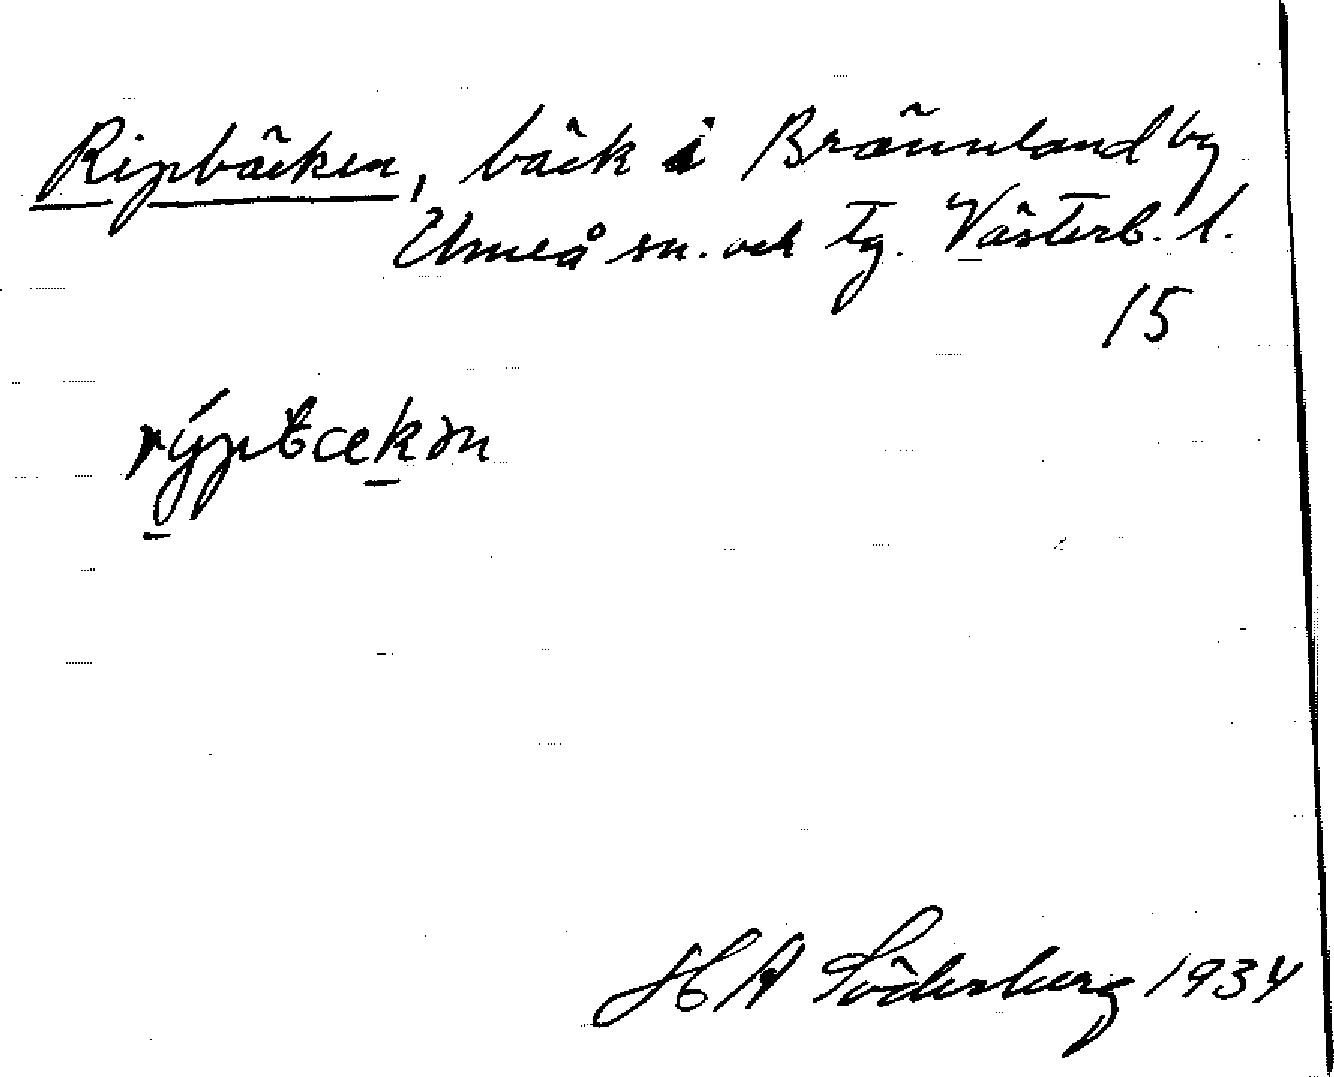 Ripbäcken, bäck i Brännland by
Umeå sn. och tg. Västerb. l.
15
rýpbækən
H A Söderberg 1934